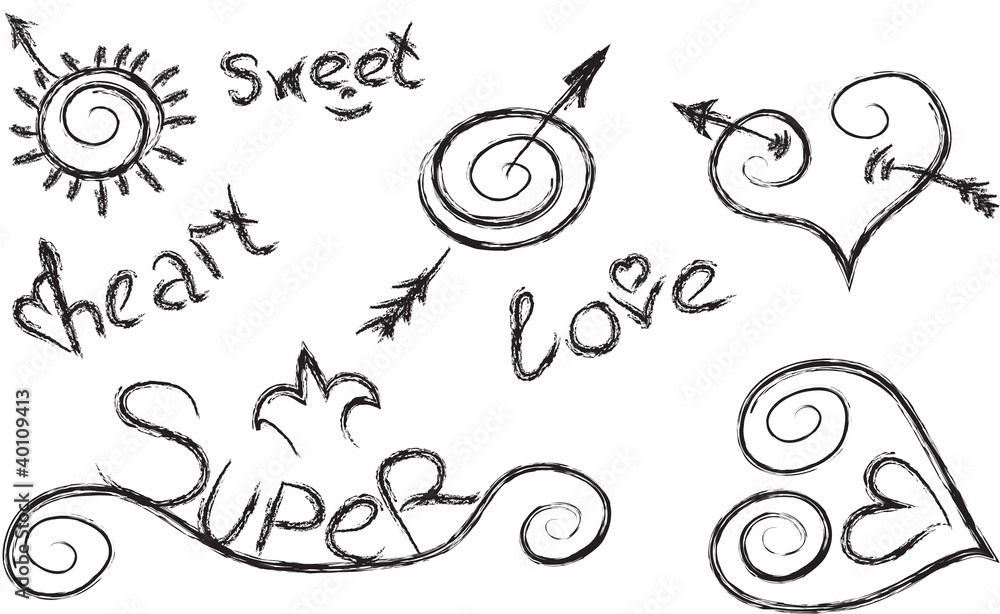 sweet
heart
love
Super
Adobe Stock | #40109413